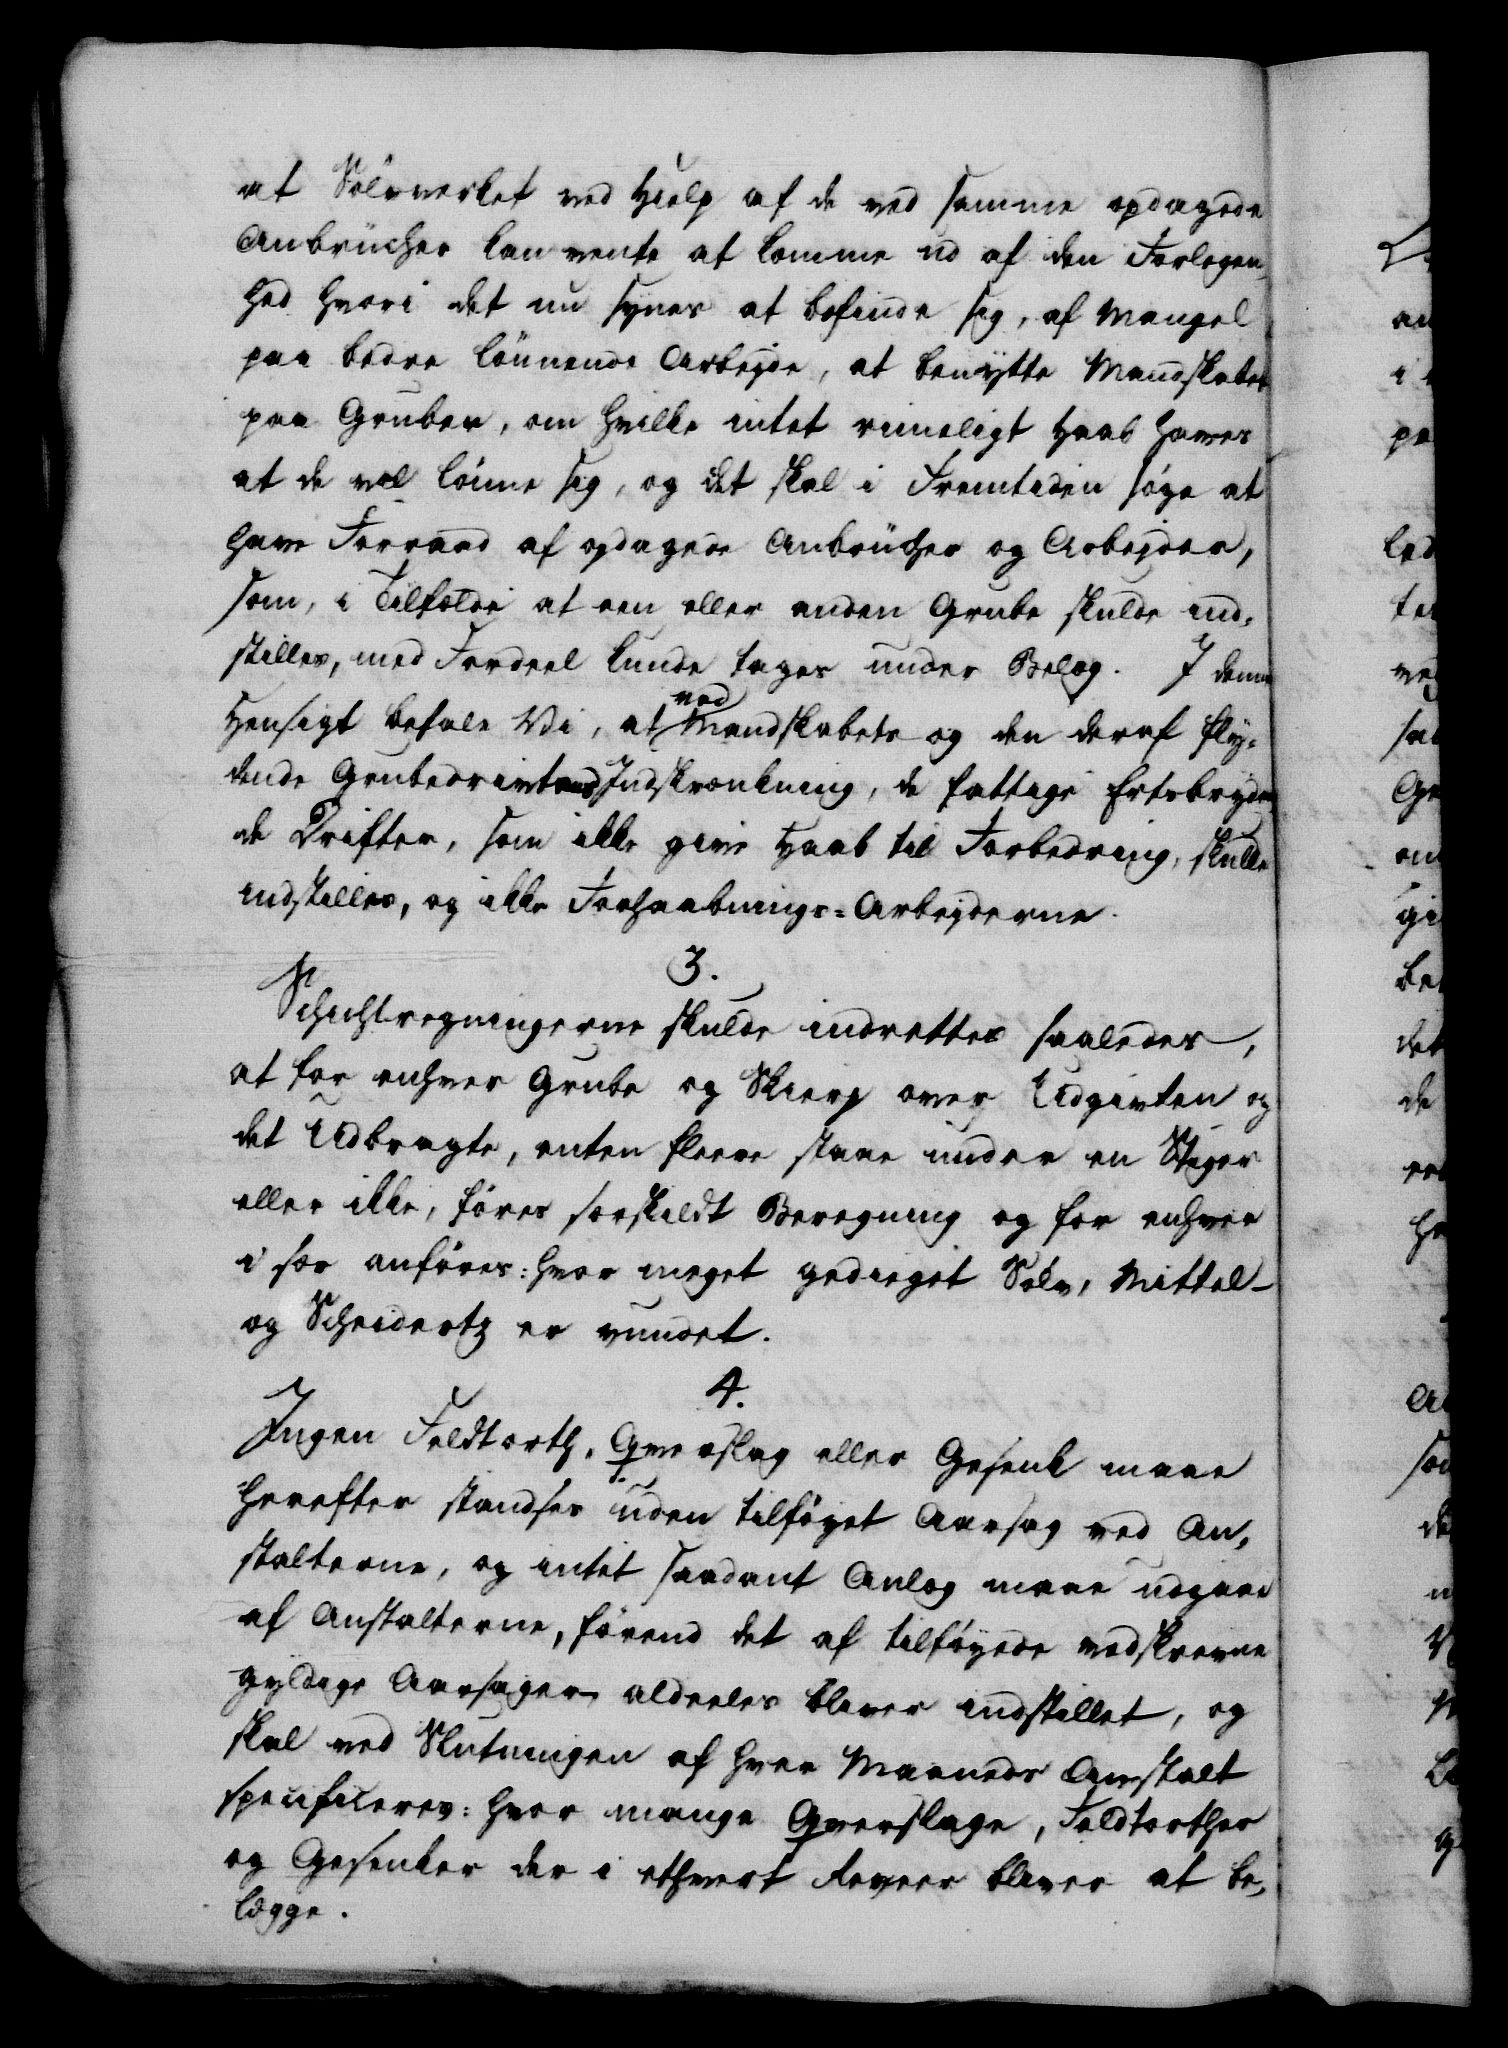 at Sølvverket ved Hielp af de ved samme opdagede
Anbrücher kan vente at komme ud af den Forlegen-
hed hvori det nu synes at befinde sig, af Mangel
paa bedre lönnende Arbejde, at benytte Mandskabet
paa Gruber, om hvilke intet rimeligt Haab haves
at de vel lönne sig, og det skal i Fremtiden söge at
have Forraad af opdagede Anbrücher og Arbejder,
som, i Tilfelde at een eller anden Grube skulde ind-
stilles, med Fordeel kunde tages under Belæg. I denne
Hensigt befale Vi, at ved Mandskabets og den deraf fly-
dende Grubedrivtens Indskrænkning, de fattige Ertsbryden
de Drifter, som ikke give Haab til Forbedring, skulle
indstilles, og ikke Forhaabnings-Arbejderne.
3.
Schichtregningerne skulde indrettes saaledes,
at for enhver Grube og Skierp over Udgivten og
det Udbragte, enten fleere staae under en Stiger
eller ikke, föres særskildt Beregning og for enhver
i sær anföres: hvor meget gedieget Sölv, Mittel-
og Scheidertz er vundet.
4.
Ingen Feldtorth, Qverslag eller Gesenk maae
herefter standses uden tilföyet Aarsag ved An-
stalterne, og intet saadant Anlæg maae udgaae
af Anstalterne, förend det af tilföyede vedskrevne
gyldige Aarsager aldeeles bliver indstillet, og
skal ved Slutningen af hver Maaneds Anstalt
specificeres: hvor mange Qverslage, Feldtorther
og Gesenker der i ethvert Reveer bliver at be-
lægge.